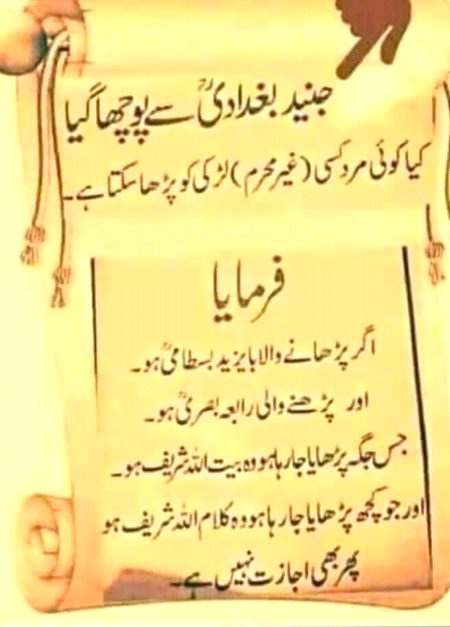 جنید بغدادیؒ سے پوچھا گیا
کیا کوئی مرد کسی (غیر محرم) لڑکی کو پڑھا سکتا ہے۔
فرمایا
اگر پڑھانے والا بایزید بسطامیؒ ہو۔
اور پڑھنے والی رابعہ بصریؒ ہو۔
جس جگہ پڑھایا جا رہا ہو وہ بیت اللہ شریف ہو۔
اور جو کچھ پڑھایا جا رہا ہو وہ کلام اللہ شریف ہو
پھر بھی اجازت نہیں ہے۔